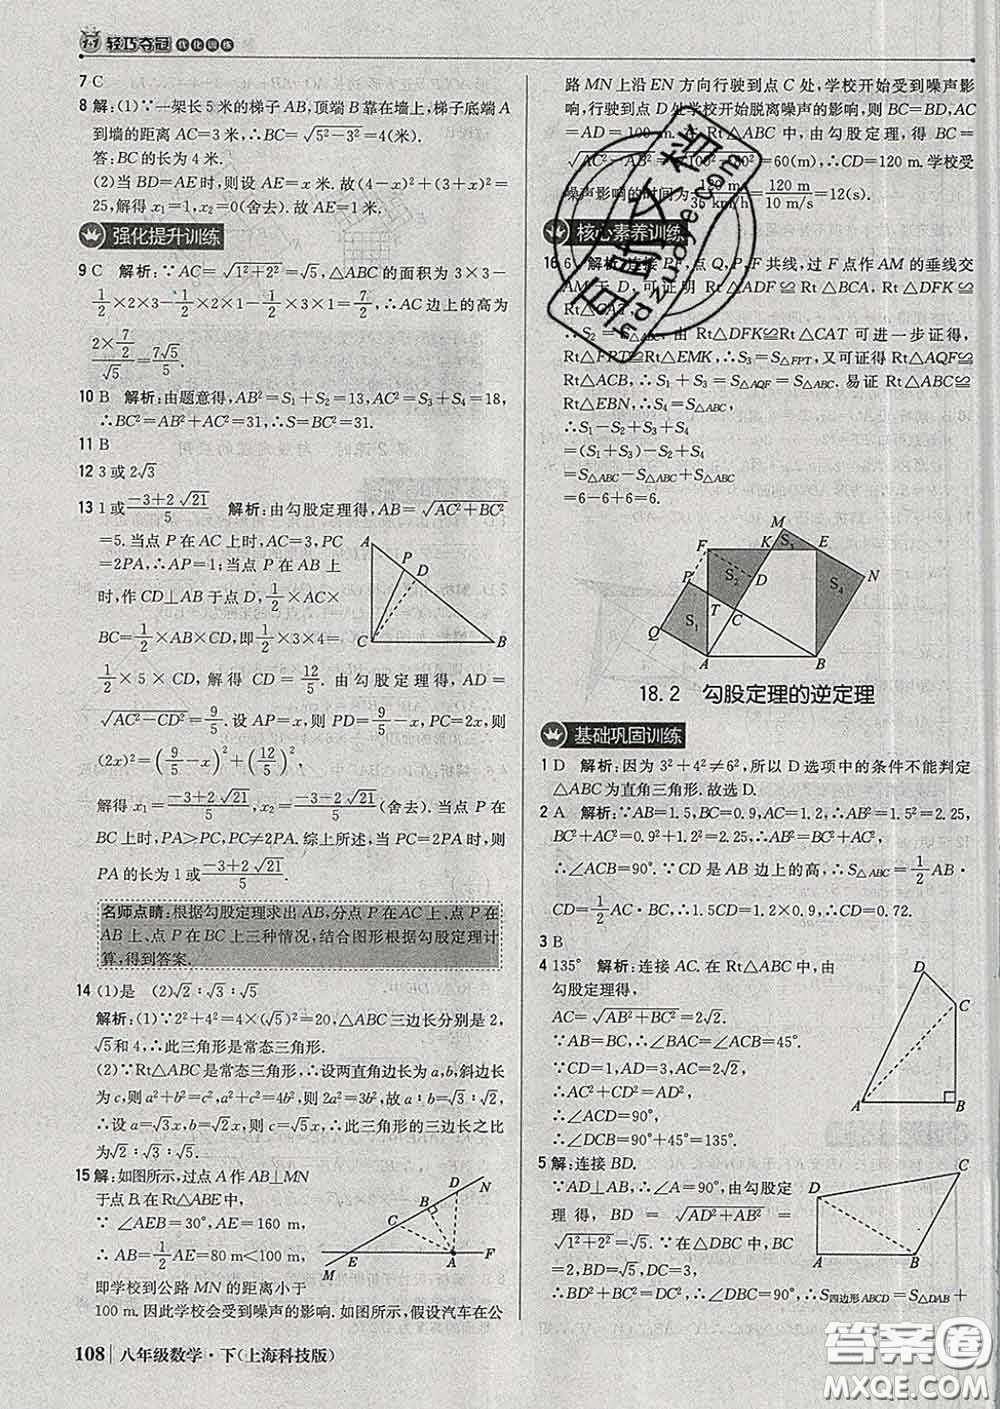 轻巧夺冠 优化训练
7 C
8 解:(1)∵一架长 5 米的梯子 AB,顶端 B 靠在墙上,梯子底端 A
到墙的距离 AC=3 米,∴BC=√(5²-3²)=4(米).
答:BC 的长为 4 米.
(2)当 BD=AE 时,则设 AE=x 米. 故(4-x)²+(3+x)²=
25,解得 x₁=1,x₂=0(舍去). 故 AE=1 米.
强化提升训练
9 C 解析:∵AC=√(1²+2²)=√5,△ABC 的面积为 3×3-
1/2×2×3-1/2×1×2-1/2×3×1=7/2,∴AC 边上的高为
(2×7/2)/√5=7√5/5.
10 B 解析:由题意得,AB²=S₁+S₂=13,AC²=S₃+S₄=18,
∴BC²=AB²+AC²=31,∴BC²=31.
11 B
12 3 或 2√3
13 1 或 (-3+2√21)/5 解析:由勾股定理得,AB=√(AC²+BC²)
=5. 当点 P 在 AC 上时,AC=3,PC
=2PA,∴PA=1;当点 P 在 AB 上
时,作 CD⊥AB 于点 D,1/2×AC×
BC=1/2×AB×CD,即 1/2×3×4=
1/2×5×CD,解得 CD=12/5. 由勾股定理得,AD=
√(AC²-CD²)=9/5. 设 PA=x,则 PD=9/5-x,PC=2x,则
(2x)²=(9/5-x)²+(12/5)²,
解得 x₁=(-3+2√21)/5,x₂=(-3-2√21)/5(舍去). 当点 P 在
BC 上时,PA>PC,PC≠2PA. 综上所述,当 PC=2PA 时,则
PA 的长为 1 或(-3+2√21)/5.
A
P
D
C
B
名师点睛:根据勾股定理求出 AB,分点 P 在 AC 上、点 P 在
AB 上、点 P 在 BC 上三种情况,结合图形根据勾股定理计
算,得到答案.
14 (1)是 (2)√2∶√3∶√5
解析:(1)∵2²+4²=4×(√5)²=20,△ABC 三边长分别是 2,
√5和 4,∴此三角形是常态三角形.
(2)∵Rt△ABC 是常态三角形,∴设两直角边长为 a,b,斜边长
为 c,则 a²+b²=c²,a²+c²=4b²,则 2a²=3b²,故 a∶b=√3∶√2,
∴设 a=√3x,b=√2x,则 c=√5x,∴此三角形的三边长之比
为√2∶√3∶√5.
15 解:如图所示,过点 A 作 AB⊥MN
于点 B. 在 Rt△ABE 中,
∵ ∠AEB=30°,AE=160 m,
∴ AB=1/2AE=80 m<100 m,
即学校到公路 MN 的距离小于
100 m. 因此学校会受到噪声的影响. 如图所示,假设汽车在公
D
N
B
C
M
E
A
F
108 八年级数学·下(上海科技版)
路 MN 上沿 EN 方向行驶到点 C 处,学校开始受到噪声影
响,行驶到点 D 处学校开始脱离噪声的影响,则 BC=BD,AC
=AD=100 m. 在 Rt△ABC 中,由勾股定理,得 BC=
√(AC²-AB²)=√(100²-80²)=60(m),∴CD=120 m. 学校受
噪声影响的时间为 120 m/36 km/h=120 m/10 m/s=12(s).
核心素养训练
16 6 解析:连接 PF,点 Q,P,F 共线,过 F 点作 AM 的垂线交
AM 于 D,可证明 Rt△ADF≌Rt△BCA,Rt△DFK≌
Rt△CAT,
∴S₂=S△ABC. 由 Rt△DFK≌Rt△CAT 可进一步证得,
Rt△FPT≌Rt△EMK,∴S₃=S△FPT,又可证得 Rt△AQF≌
Rt△ACB,∴S₁+S₃=S△AQF=S△ABC. 易证 Rt△ABC≌
Rt△EBN,∴S₄=S△ABC,
∴S₁-S₂+S₃+S₄
=(S₁+S₃)-S₂+S₄
=S△ABC-S△ABC+S△ABC
=6-6+6=6.
M
F
K
S₃
E
P
S₂
D
N
S₄
T
C
Q
S₁
A
B
18.2 勾股定理的逆定理
基础巩固训练
1 D 解析:因为 3²+4²≠6²,所以 D 选项中的条件不能判定
△ABC 为直角三角形. 故选 D.
2 A 解析:∵AB=1.5,BC=0.9,AC=1.2,∴AB²=2.25,
BC²+AC²=0.9²+1.2²=2.25,∴AB²=BC²+AC²,
∴∠ACB=90°. ∵CD 是 AB 边上的高,∴S△ABC=1/2AB·
CD=1/2AC·BC,1.5CD=1.2×0.9,∴CD=0.72.
3 B
4 135° 解析:连接 AC. 在 Rt△ABC 中,由
勾股定理得,
AC=√(AB²+BC²)=√2.
∵AB=BC,∴∠BAC=∠ACB=45°.
∵CD=1,AD=√3,AC=√2,
∴AC²+CD²=AD²,
∴∠ACD=90°,
∴∠DCB=90°+45°=135°.
D
C
A
B
5 解:连接 BD.
∵AD⊥AB,∴∠A=90°,由勾股定
理得,BD=√(AD²+AB²)=
√(1²+2²)=√5. ∵在△DBC 中,DB²
+BC²=CD²,BD=√5,∴CD²=
BD²+BC²,∴∠DBC=90°,∴S四边形ABCD=S△DAB+
C
D
A
B
百助文档
ydzuoye.com
答案圈
MXQE.COM